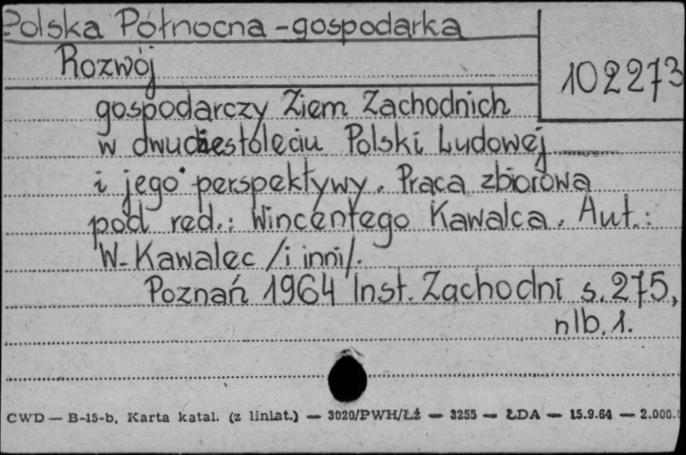 Polska Północna - gospodarka
Rozwój
102273
gospodarczy Ziem Zachodnich
w dwudziestoleciu Polski Ludowej
i jego perspektywy. Praca zbiorowa
pod red.: Wincentego Kawalca. Aut.:
W. Kawalec /i inni/.
Poznań 1964 Inst. Zachodni s. 275,
nlb. 1.
CWD — B-15-b, Karta katal. (z liniat.) — 3020/PWH/Łź — 3255 — ŁDA — 15.9.64 — 2.000.